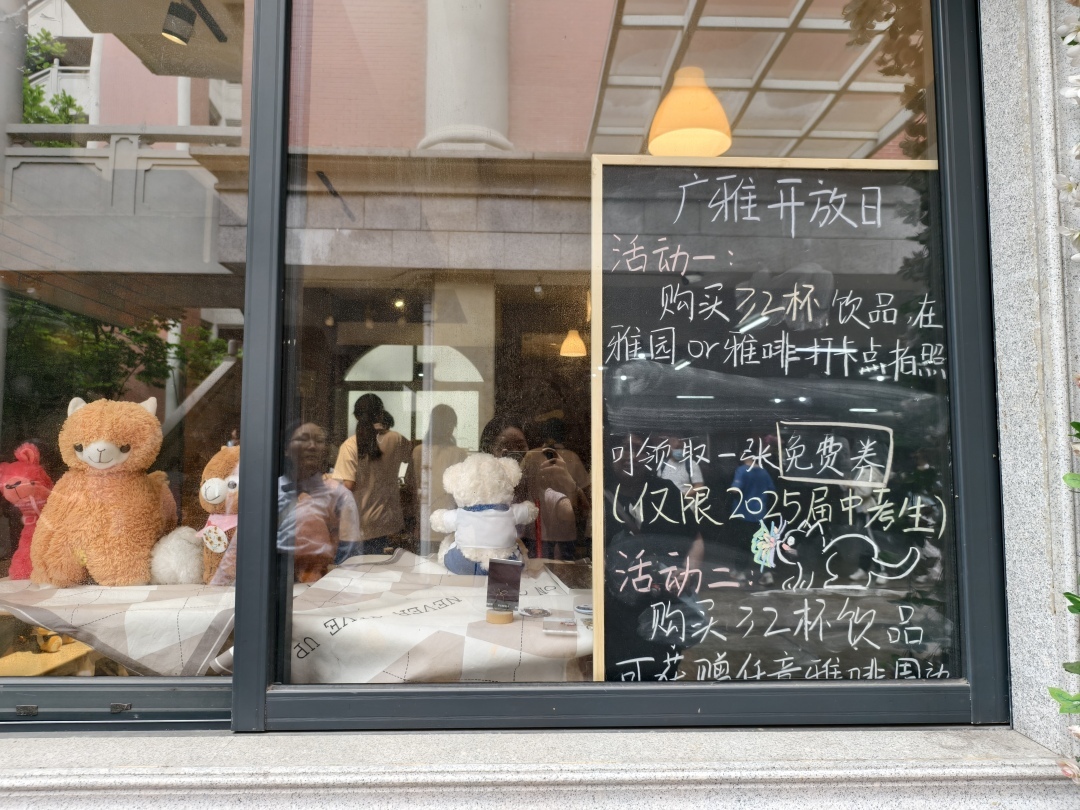 广雅开放日
活动一：
购买32杯饮品,在
雅园 or 雅啡打卡点拍照
可领取一张免费券
(仅限2025届中考生)
活动二：
购买32杯饮品
可获赠任意雅啡周边
NEVER GIVE UP